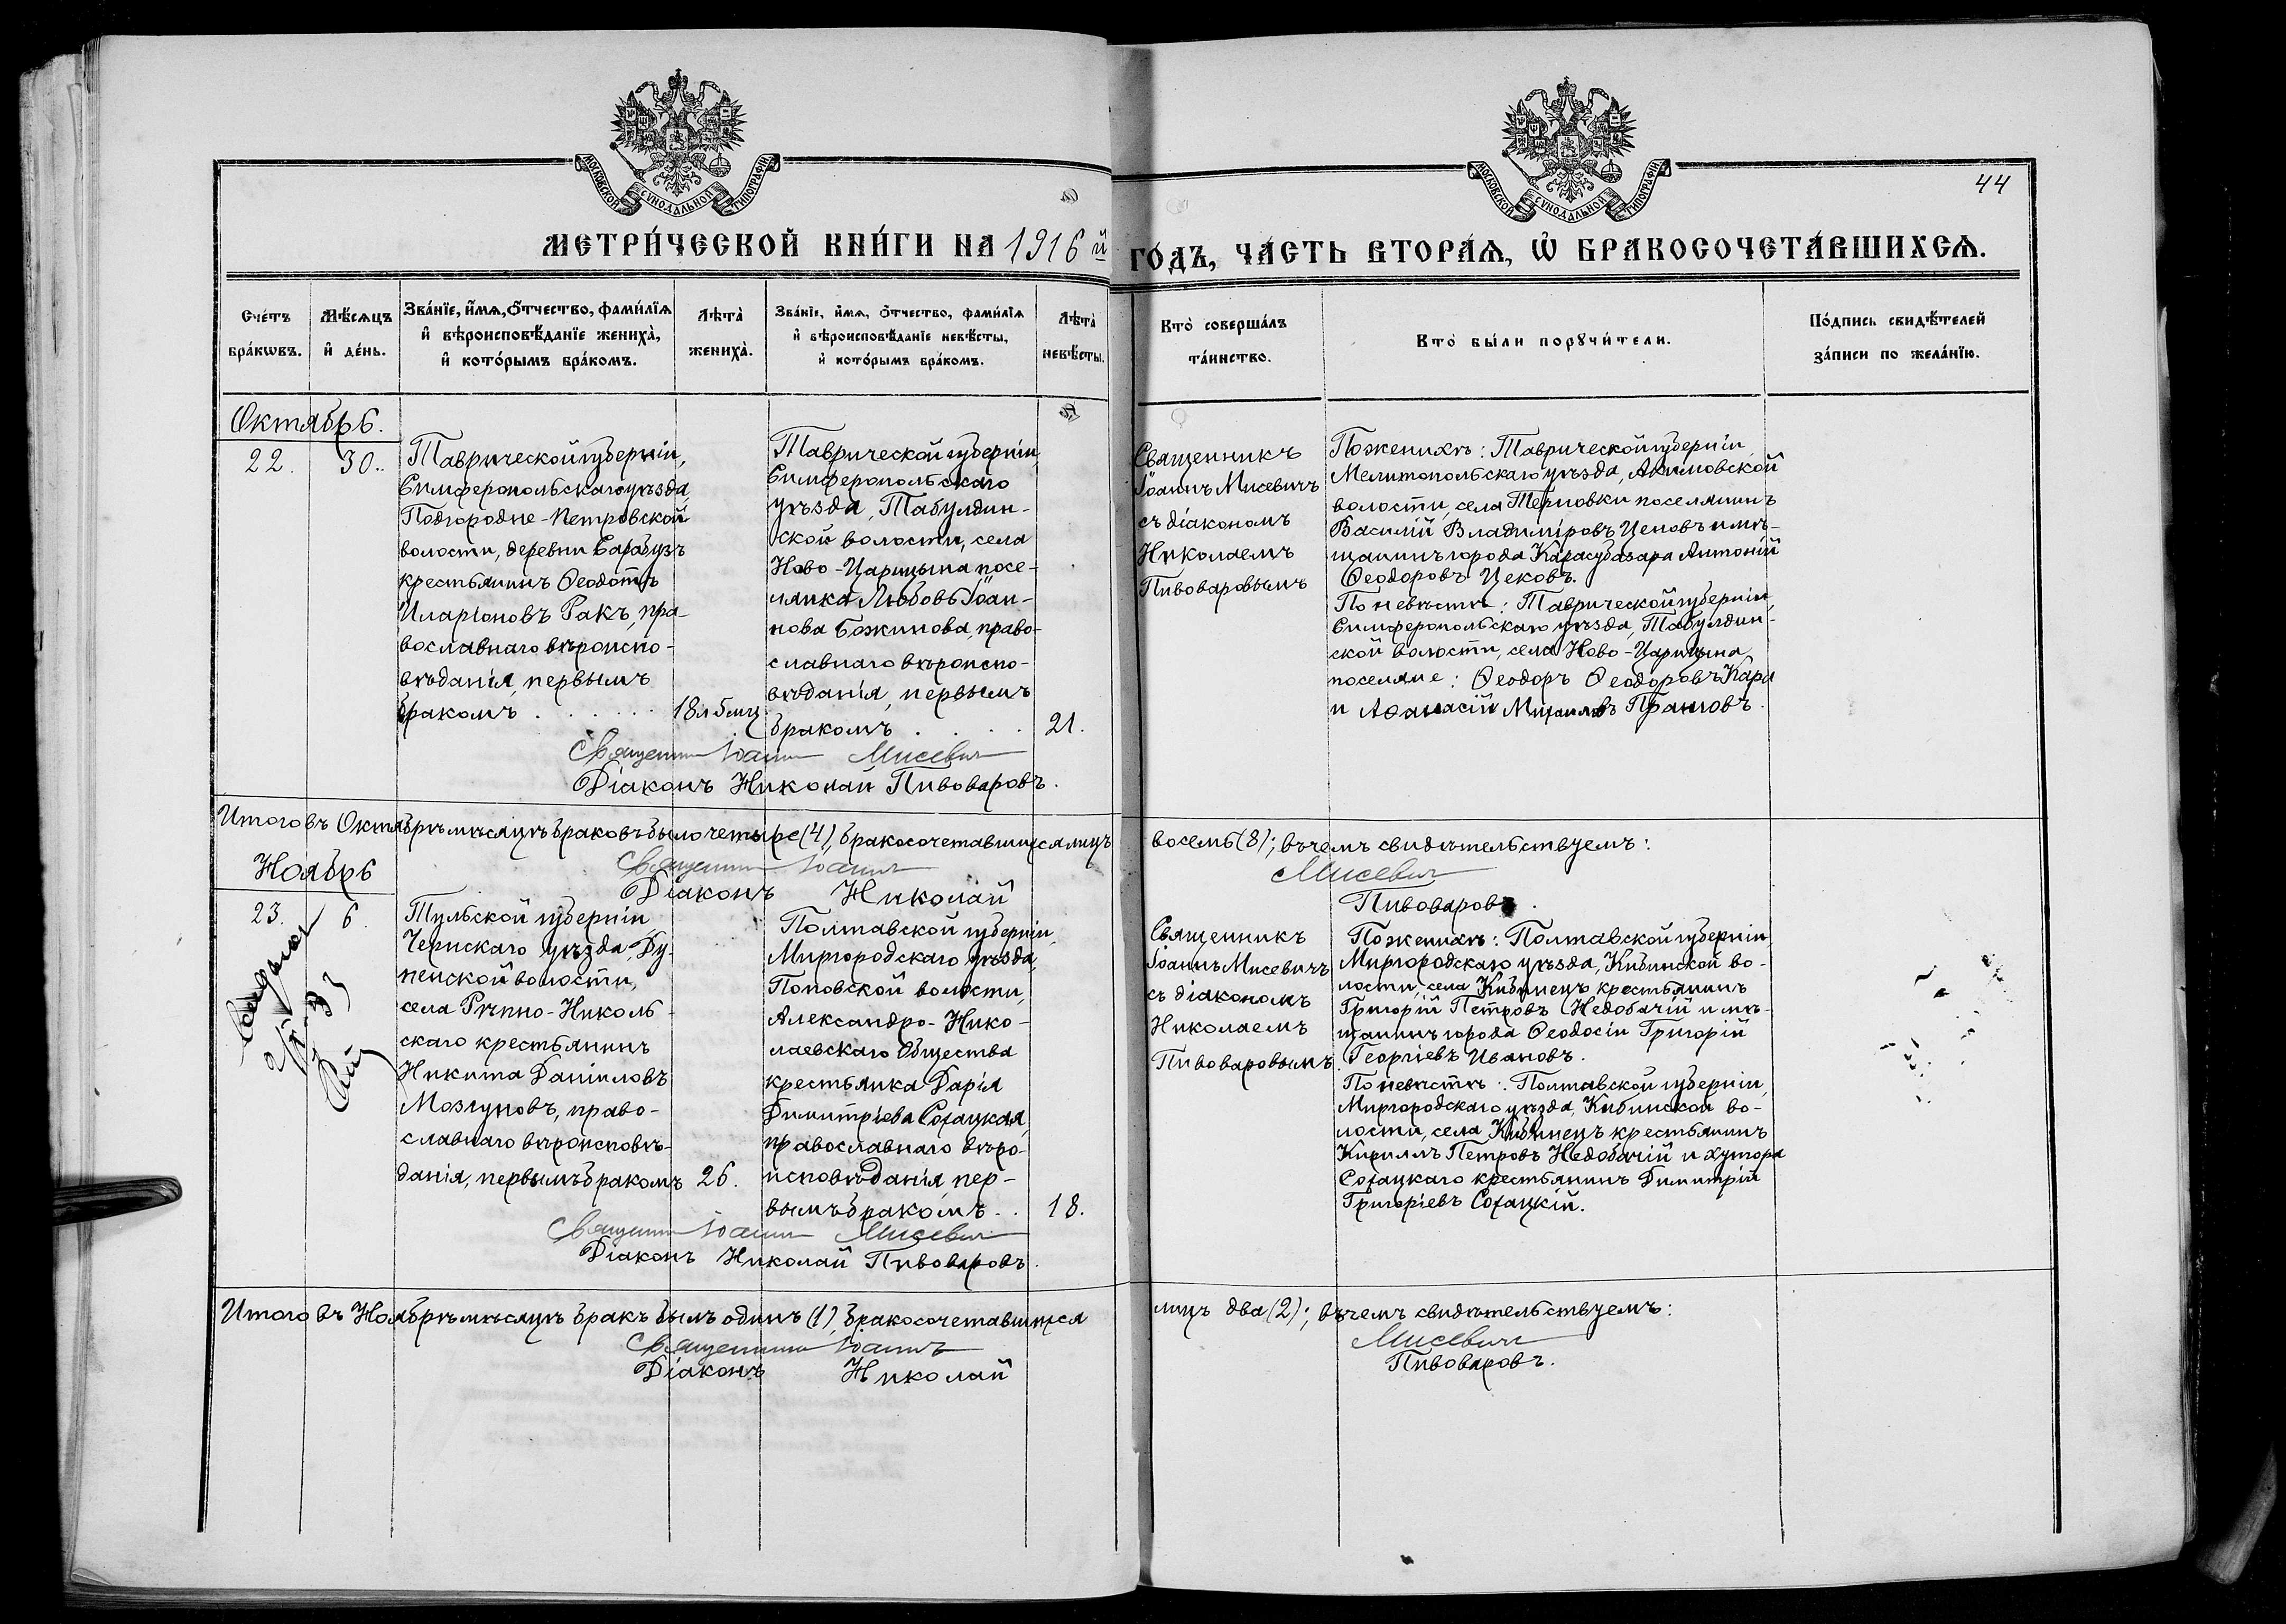 МОСКОВСКОЙ СѴНОДАЛЬНОЙ ТИПОГРАФІИ
МОСКОВСКОЙ СѴНОДАЛЬНОЙ ТИПОГРАФІИ
44
МЕТРИ́ЧЕСКОЙ КНИ́ГИ НА 1916й ГО́ДЪ, ЧА́СТЬ ВТОРА́Ѧ, Ѽ БРАКОСОЧЕТА́ВШИХСѦ.
Сче́тъ
бра́кѡвъ.
Мѣ́сѧцъ
и҆ де́нь.
Зва́нїе, и҆́мѧ, ѻ҆́тчество, фами́лїѧ
и҆ вѣроисповѣ́данїе жениха̀,
и҆ кото́рымъ бра́комъ.
Лѣ́та̀
жениха̀.
Зва́нїе, и҆́мѧ, ѻ҆́тчество, фами́лїѧ
и҆ вѣроисповѣ́данїе невѣ́сты,
и҆ кото́рымъ бра́комъ.
Лѣ́та̀
невѣ́сты.
Кто̀ соверша́лъ
та́инство.
Кто̀ бы́ли порꙋчи́тели.
По́дпись свидѣ́телей
за́писи по жела́нїю.
Октябрь.
22.
30.
Таврической губерніи,
Симферопольскаго уѣзда,
Подгородне-Петровской
волости, деревни Сарабузъ
крестьянинъ Ѳеодотъ
Иларіоновъ Ракъ, пра-
вославнаго вѣроиспо-
вѣданія, первымъ
бракомъ
18 л 5 мц
Таврической губерніи,
Симферопольскаго
уѣзда, Табулдин-
ской волости, села
Ново-Царицына посе-
лянка Любовь Іоан-
нова Божинова, право-
славнаго вѣроиспо-
вѣданія, первымъ
бракомъ
21.
Священникъ
Іоаннъ Мисевичъ
съ діакономъ
Николаемъ
Пивоваровымъ
По женихѣ: Таврической губерніи
Мелитопольскаго уѣзда, Акимовской
волости, села Терновки поселянинъ
Василій Владиміровъ Ценовъ и мѣ-
щанинъ города Карасубазара Антоній
Ѳеодоровъ Цековъ.
По невѣстѣ: Таврической губерніи,
Симферопольскаго уѣзда, Табулдин-
ской волости, села Ново-Царицына
поселяне: Ѳеодоръ Ѳеодоровъ Кара
и Аѳанасій Михаиловъ
Священникъ Іоаннъ Мисевичъ
Діаконъ Николай Пивоваровъ.
Итого въ Октябрѣ мѣсяцѣ браковъ было четыре (4), бракосочетавшихся лицъ восемь (8); въ чемъ свидѣтельствуемъ:
Священникъ Іоаннъ Мисевичъ
Діаконъ Николай Пивоваровъ.
Ноябрь
23.
6.
Тульской губерніи
Чернскаго уѣзда, Ду-
пенской волости,
села Рѣпно-Николь-
скаго крестьянинъ
Никита Даниловъ
Мозгуновъ, право-
славнаго вѣроисповѣ-
данія, первымъ бракомъ
26.
Полтавской губерніи,
Миргородскаго уѣзда,
Поповской волости,
Александро-Нико-
лаевскаго Общества
крестьянка Дарія
Димитріева Сохацкая,
православнаго вѣро-
исповѣданія, пер-
вымъ бракомъ
18.
Священникъ
Іоаннъ Мисевичъ
съ діакономъ
Николаемъ
Пивоваровымъ.
По женихѣ: Полтавской губерніи
Миргородскаго уѣзда, Кибинской во-
лости, села Кибинецъ крестьянинъ
Григорій Петровъ Недобачій и мѣ-
щанинъ города Ѳеодосіи Григорій
Георгіевъ Ивановъ.
По невѣстѣ: Полтавской губерніи,
Миргородскаго уѣзда, Кибинской во-
лости, села Кибинецъ крестьянинъ
Кириллъ Петровъ Недобачій и хутора
Сохацкаго крестьянинъ Димитрій
Григоріевъ Сохацкій.
Священникъ Іоаннъ Мисевичъ
Діаконъ Николай Пивоваровъ.
Итого въ Ноябрѣ мѣсяцѣ бракъ былъ одинъ (1), бракосочетавшихся лицъ два (2); въ чемъ свидѣтельствуемъ:
Священникъ Іоаннъ Мисевичъ
Діаконъ Николай Пивоваровъ.